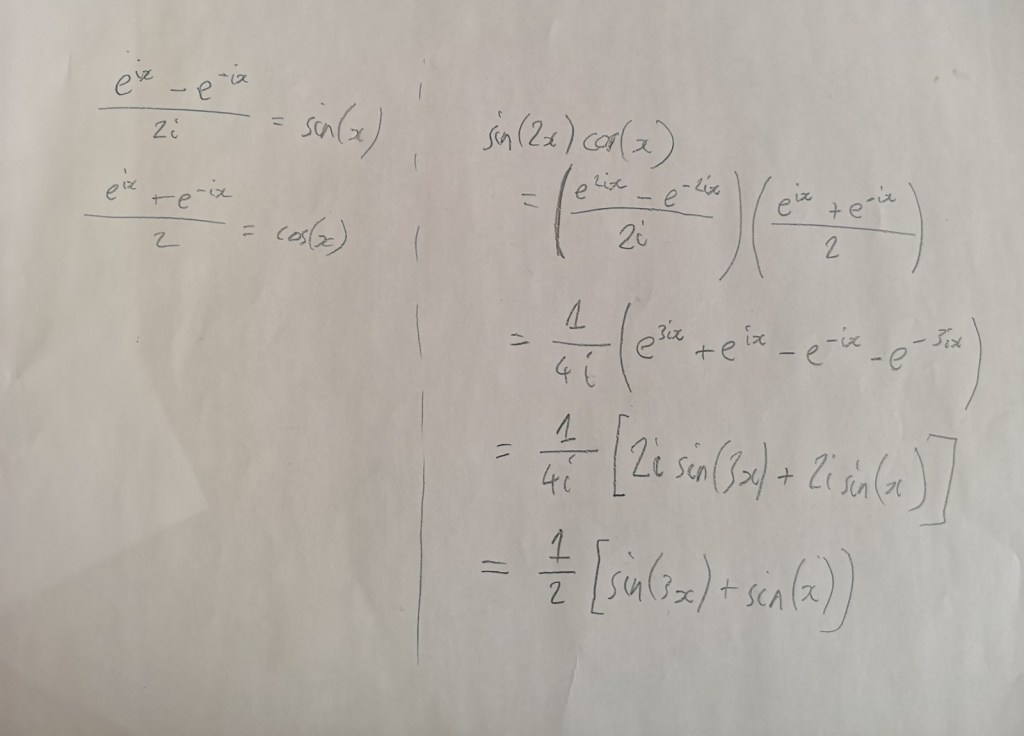 (e^{ix} - e^{-ix})/2i = sin(x)
(e^{ix} + e^{-ix})/2 = cos(x)
sin(2x) cos(x)
= ((e^{2ix} - e^{-2ix})/2i) ((e^{ix} + e^{-ix})/2)
= 1/4i (e^{3ix} + e^{ix} - e^{-ix} - e^{-3ix})
= 1/4i [2i sin(3x) + 2i sin(x)]
= 1/2 [sin(3x) + sin(x))